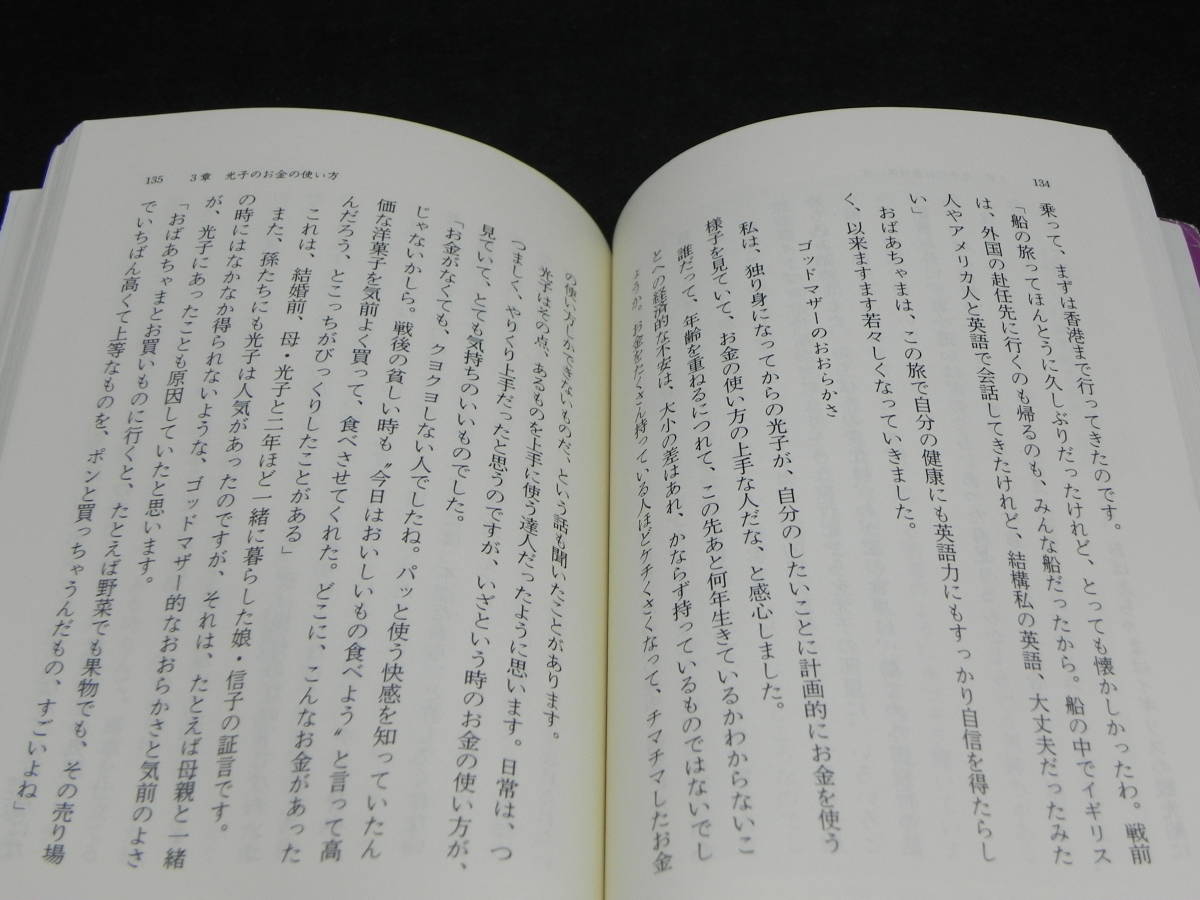 134
乗って、まずは香港まで行ってきたのです。
「船の旅ってほんとうに久しぶりだったけれど、とっても懐かしかったわ。戦前
は、外国の赴任先に行くのも帰るのも、みんな船だったから。船の中でイギリス
人やアメリカ人と英語で会話してきたけれど、結構私の英語、大丈夫だったみた
い」
おばあちゃまは、この旅で自分の健康にも英語力にもすっかり自信を得たらし
く、以来ますます若々しくなっていきました。
ゴッドマザーのおおらかさ
私は、独り身になってからの光子が、自分のしたいことに計画的にお金を使う
様子を見ていて、お金の使い方の上手な人だな、と感心しました。
誰だって、年齢を重ねるにつれて、この先あと何年生きているかわからないこ
とへの経済的な不安は、大小の差はあれ、かならず持っているものではないでし
ょうか。お金をたくさん持っている人ほどケチくさくなって、チマチマしたお金
135 3章 光子のお金の使い方
の使い方しかできないものだ、という話も聞いたことがあります。
光子はその点、あるものを上手に使う達人だったように思います。日常は、つ
つましく、やりくり上手だったと思うのですが、いざという時のお金の使い方が、
見ていて、とても気持ちのいいものでした。
「お金がなくても、クヨクヨしない人でしたね。パッと使う快感を知っていたん
じゃないかしら。戦後の貧しい時も〝今日はおいしいもの食べよう〟と言って高
価な洋菓子を気前よく買って、食べさせてくれた。どこに、こんなお金があった
んだろう、とこっちがびっくりしたことがある」
これは、結婚前、母・光子と二年ほど一緒に暮らした娘・信子の証言です。
また、孫たちにも光子は人気があったのですが、それは、たとえば母親と一緒
の時にはなかなか得られないような、ゴッドマザー的なおおらかさと気前のよさ
が、光子にあったことも原因していたと思います。
「おばあちゃまとお買いものに行くと、たとえば野菜でも果物でも、その売り場
でいちばん高くて上等なものを、ポンと買っちゃうんだもの、すごいよね」